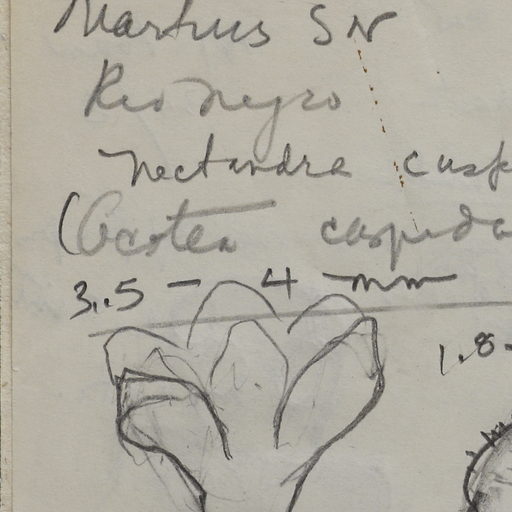 Martius SN
Rio negro
Nectandra cusp
(Ocotea caspida
3.5 - 4 mm
1.8-